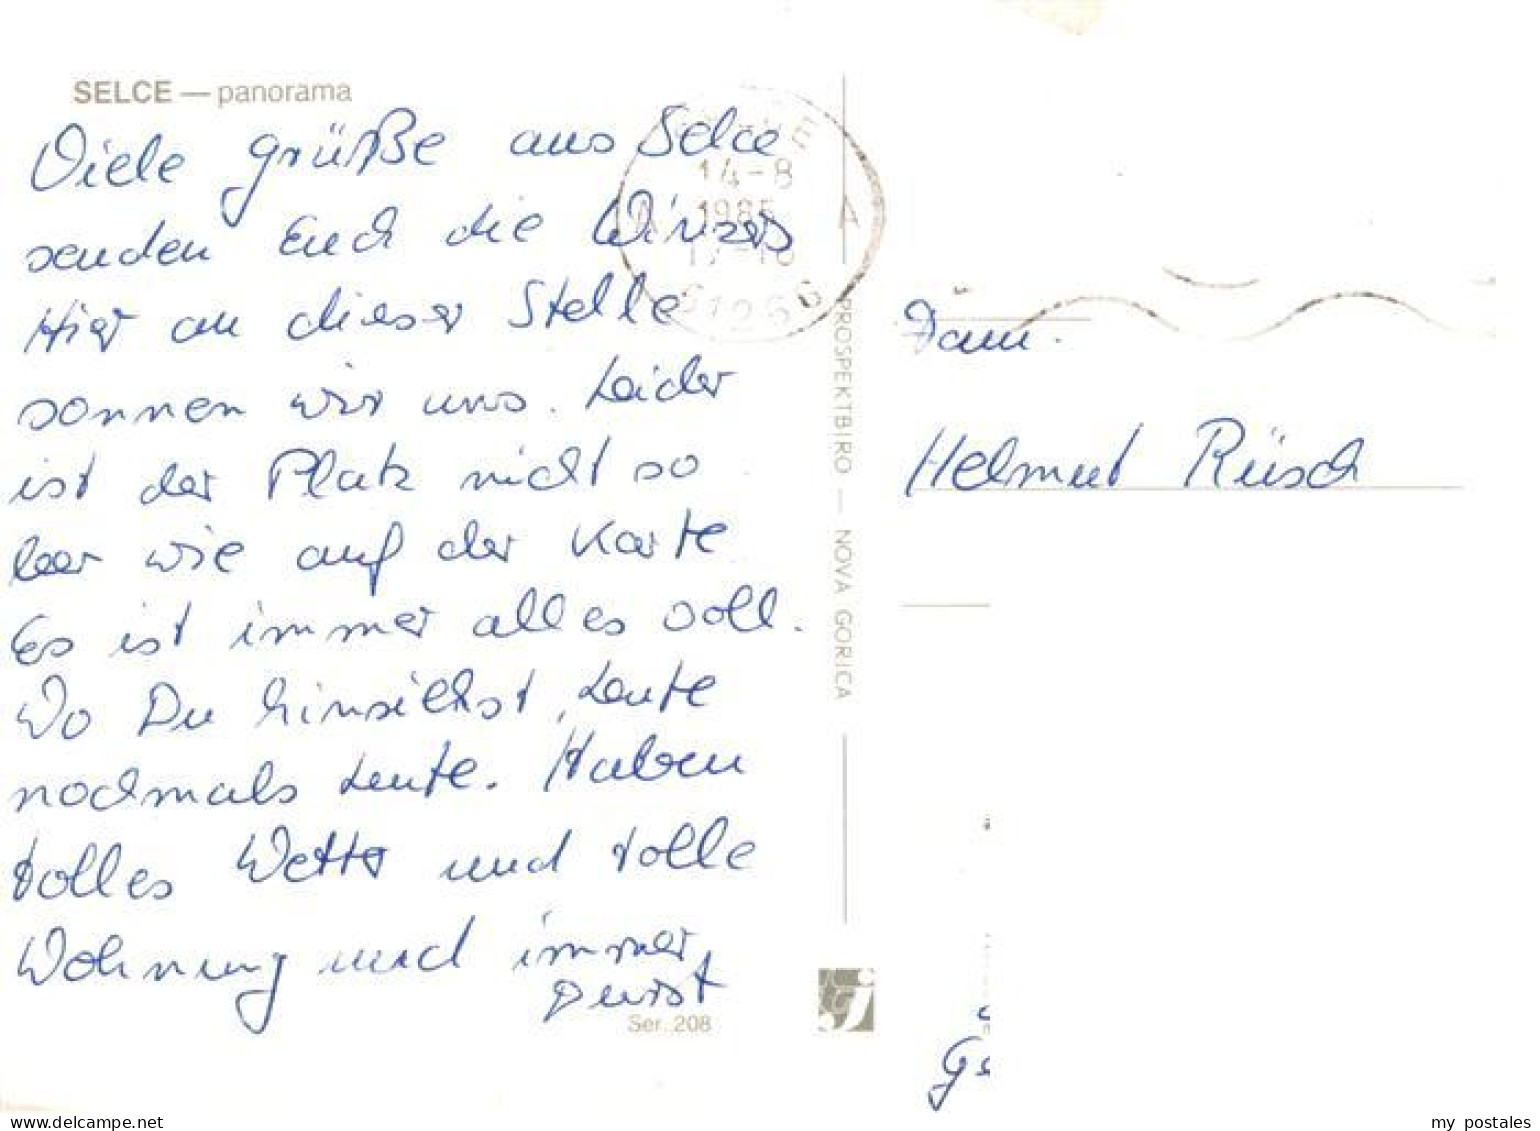 SELCE — panorama
Viele Grüße aus Selce
senden Euch die Winzers
Hier an dieser Stelle
sonnen wir uns. Leider
ist der Platz nicht so
leer wie auf der Karte
Es ist immer alles voll.
Wo Du hinsiehst, Leute
nochmals Leute. Haben
tolles Wetter und tolle
Wohnung und immer
Durst
Ser. 208
14-8
1985
17-18
51266
A
PROSPEKTBIRO — NOVA GORICA
Fam.
Helmut Rüsch
delcampe.net
my_postales